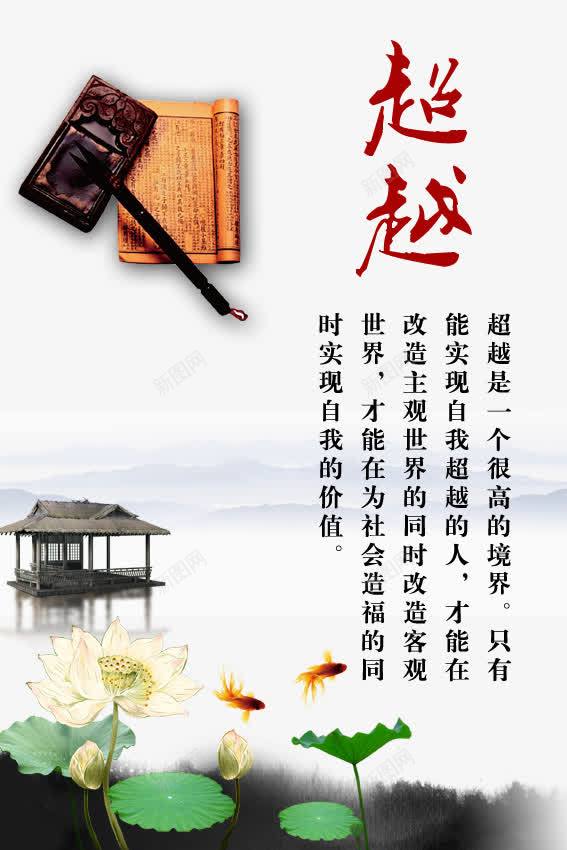 超越
超越是一个很高的境界。只有
能实现自我超越的人，才能在
改造主观世界的同时改造客观
世界，才能在为社会造福的同
时实现自我的价值。
新图网